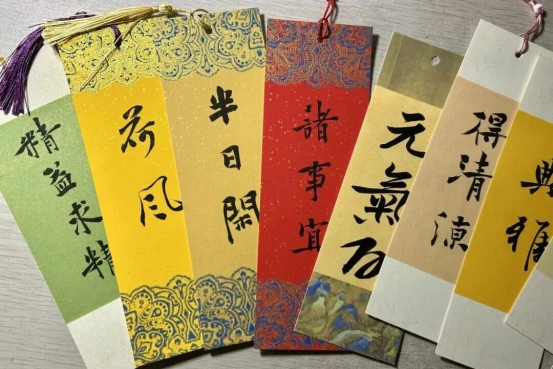 精益求精
荷风
半日閑
諸事宜
元氣
得清涼
典雅